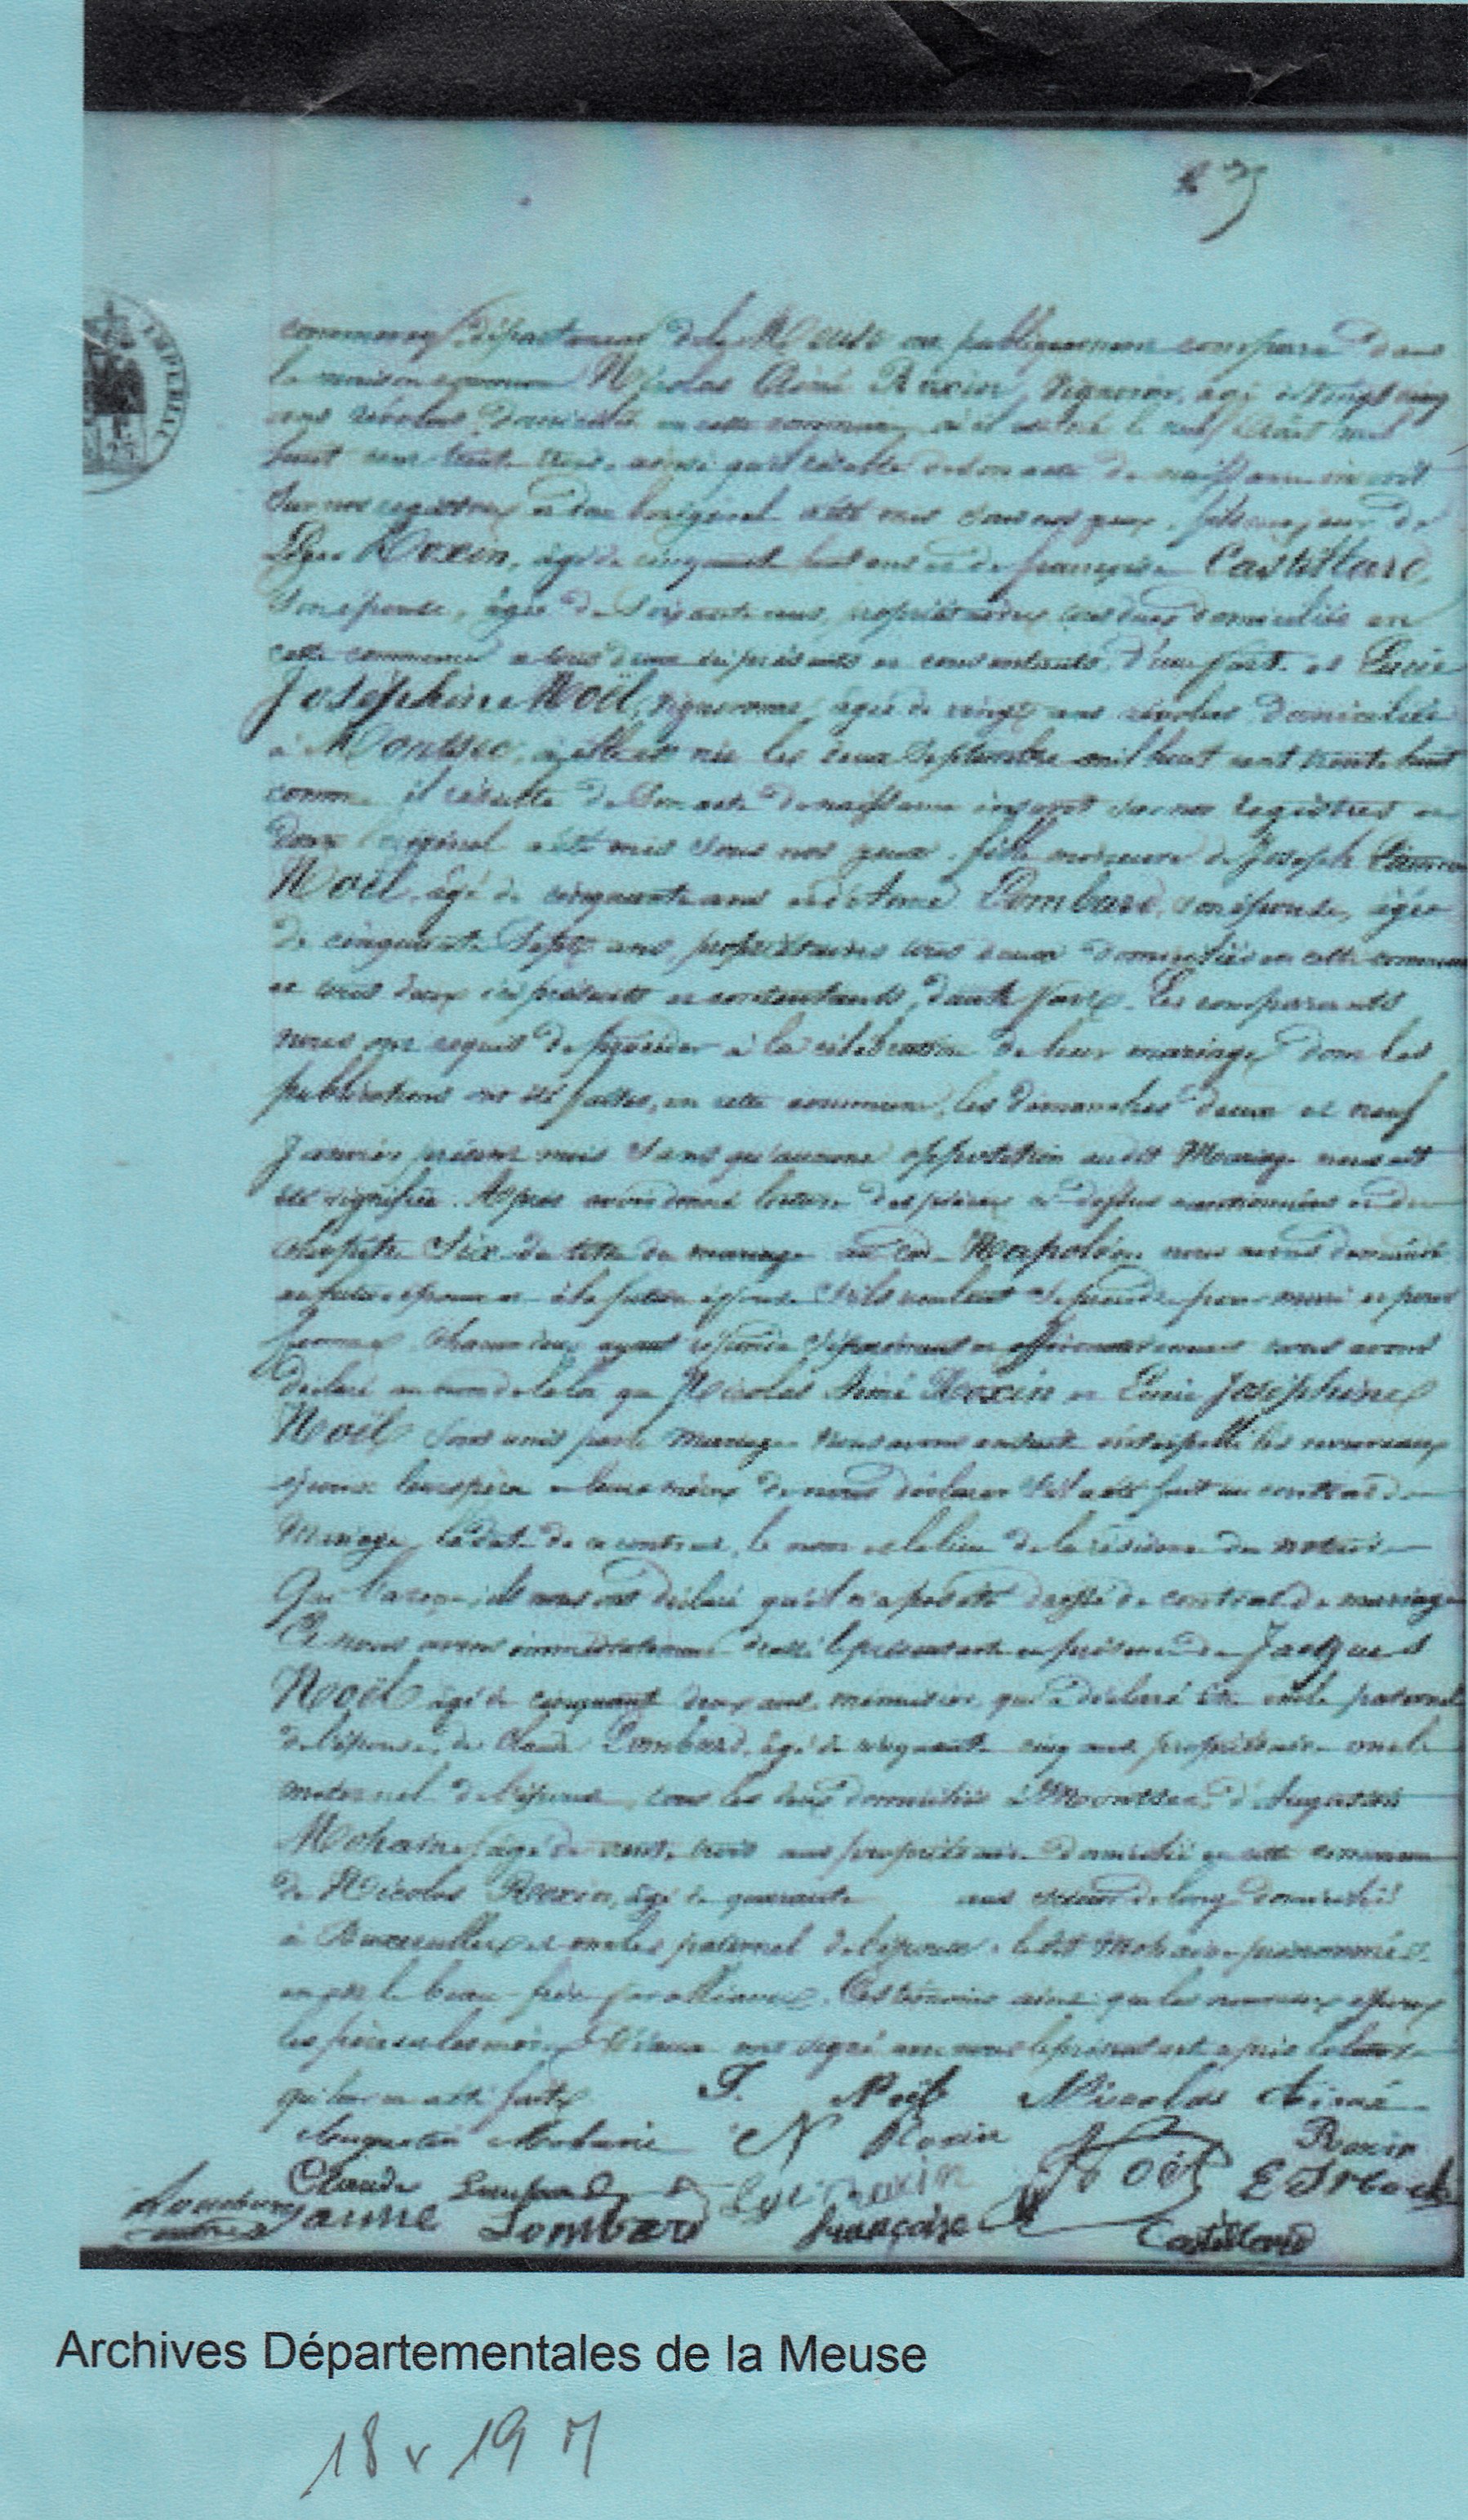 27
IMPÉRIAL
département de la Meuse ont publiquement comparu dans
la maison commune Nicolas Aimé Roxin, vigneron, âgé de vingt cinq
ans révolus domicilié en cette commune, où il est né le neuf Août mil
huit cent trente trois, ainsi qu'il résulte de son acte de naissance inscrit
sur nos registres et dont l'original a été mis sous nos yeux, fils majeur de
Roxin, âgé de cinquante huit ans et de françoise Castillard,
son épouse, âgée de soixante ans, propriétaires tous deux domiciliés en
cette commune et tous deux ici présents et consentants, d'une part. et Lucie
Joséphine Noël, vigneronne, âgée de vingt ans révolus domiciliée
à Montsec, où elle est née le deux Septembre mil huit cent trente huit
comme il résulte de son acte de naissance inscrit sur nos registres et
dont l'original a été mis sous nos yeux, fille mineure de Joseph
Noël, âgé de cinquante ans et d'Anne Lombard, son épouse, âgée
de cinquante sept ans, propriétaires tous deux domiciliés en cette commune
et tous deux ici présents et consentants, d'autre part. Les comparants
nous ont requis de procéder à la célébration de leur mariage dont les
publications ont été faites, en cette commune, les dimanches deux et neuf
Janvier présent mois sans qu'aucune opposition audit Mariage nous ait
été signifiée. Après avoir donné lecture des pièces ci-dessus mentionnées et du
chapitre Six du titre du mariage du code Napoléon nous avons demandé
au futur époux et à la future épouse s'ils veulent se prendre pour mari et pour
femme, chacun d'eux ayant répondu séparément et affirmativement nous avons
déclaré au nom de la loi que Nicolas Aimé Roxin et Lucie Joséphine
Noël sont unis par le mariage. Nous avons ensuite interpellé les nouveaux
époux leurs pères et leurs mères de nous déclarer s'il a été fait un contrat de
Mariage, la date de ce contrat, le nom et le lieu de la résidence du notaire
qui l'a reçu, ils nous ont déclaré qu'il n'a pas été dressé de contrat de mariage
Et nous avons immédiatement dressé le présent acte en présence de Jacques
Noël âgé de cinquante deux ans, menuisier, qui a déclaré être oncle paternel
de l'épouse, de Claude Lombard, âgé de cinquante cinq ans propriétaire oncle
maternel de l'épouse, tous les deux domiciliés à Montsec, d'Augustin
Mohain, âgé de trente trois ans propriétaire domicilié en cette commune
de Nicolas Roxin, âgé de quarante ans scieur de long domicilié
à Buxerulles et oncle paternel de l'époux, le dit Mohain prénommé
en est le beau-frère par alliance. Ces témoins ainsi que les nouveaux époux
les pères et les mères ont signé avec nous le présent acte après lecture
qui leur en a été faite
J. Noël Nicolas Aimé
Augustin Mohain N Roxin Roxin
Claude Lombard Roxin Noël
anne Lombard françoise Castillard
Archives Départementales de la Meuse
18 x 19